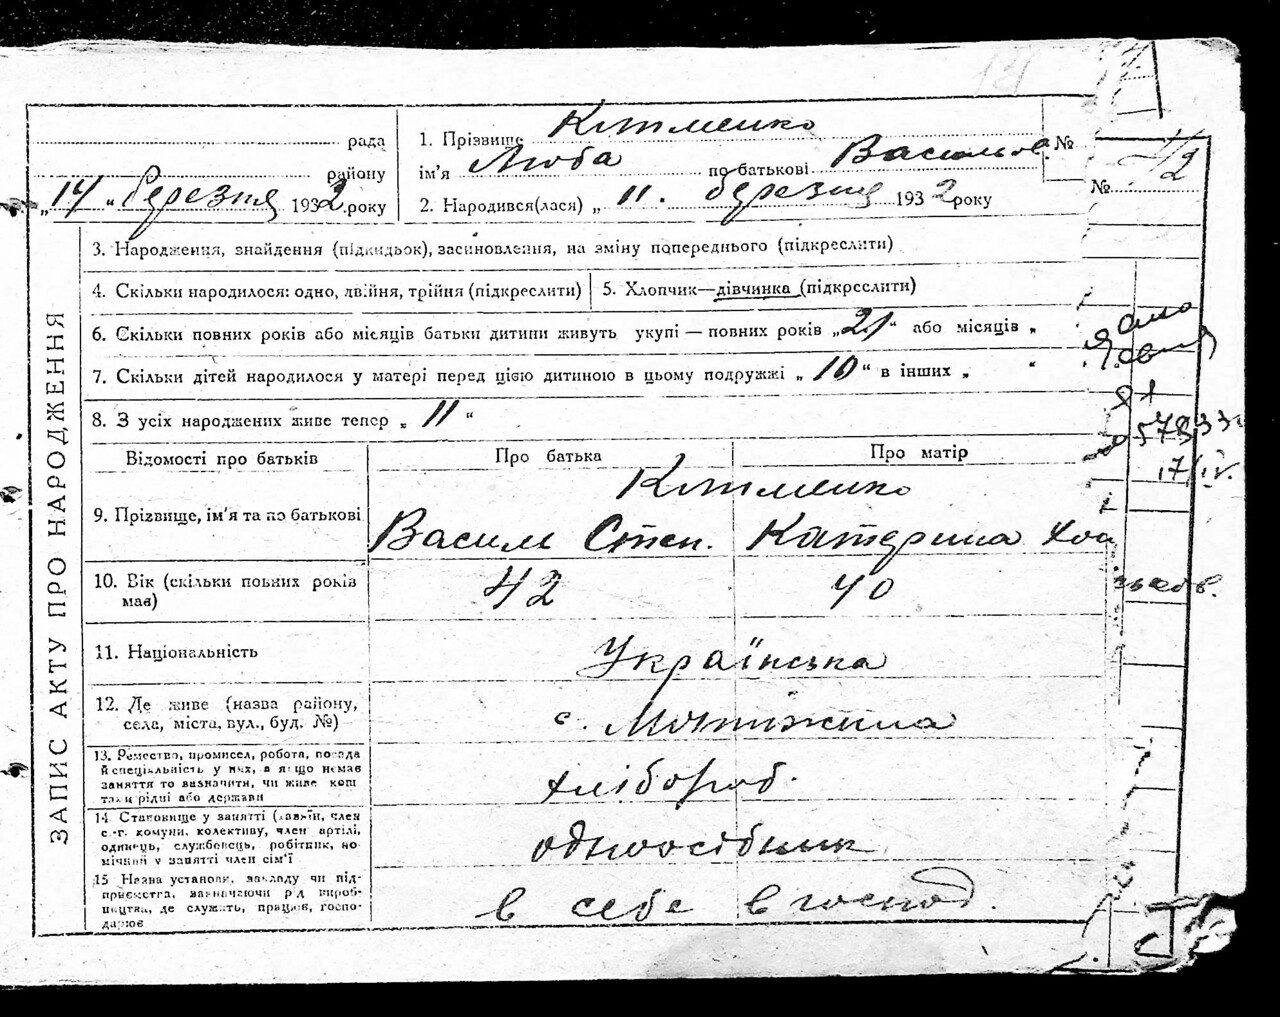 рада
району
„14 „ березня 1932 року
1. Прізвище Клименко
ім'я Люба по батькові Васильов.
№
2. Народився(лася) „ 11. березня 1932 року
№
ЗАПИС АКТУ ПРО НАРОДЖЕННЯ
3. Народження, знайдення (підкидьок), засиновлення, на зміну попереднього (підкреслити)
4. Скільки народилося: одно, двійня, трійня (підкреслити)
5. Хлопчик—дівчинка (підкреслити)
6. Скільки повних років або місяців батьки дитини живуть укупі — повних років „21“ або місяців „
7. Скільки дітей народилося у матері перед цією дитиною в цьому подружжі „ 10 “ в інших „ “
8. З усіх народжених живе тепер „ 11 “
Відомості про батьків
Про батька
Про матір
Клименко
9. Прізвище, ім'я та по батькові
Васил Степ. Катерина
10. Вік (скільки повних років
має)
42 40
11. Національність
Українська
12. Де живе (назва району,
села, міста, вул., буд. №)
с. Мотижила
13. Ремество, промисел, робота, посада
й спеціяльність у них, а якщо немає
заняття то зазначити, чи живе кошт
так и рідні або держави
хлібороб.
14. Становище у занятті (хазяїн, член
с.-г. комуни, колективу, член артілі,
одинець, службовець, робітник, по
мічний у занятті член сім'ї
одноосібник
15 Назва установи, закладу чи під-
приємства, зазначаючи рід вироб-
ництва, де служить, працює, госпо-
дарює
в себе в господ.